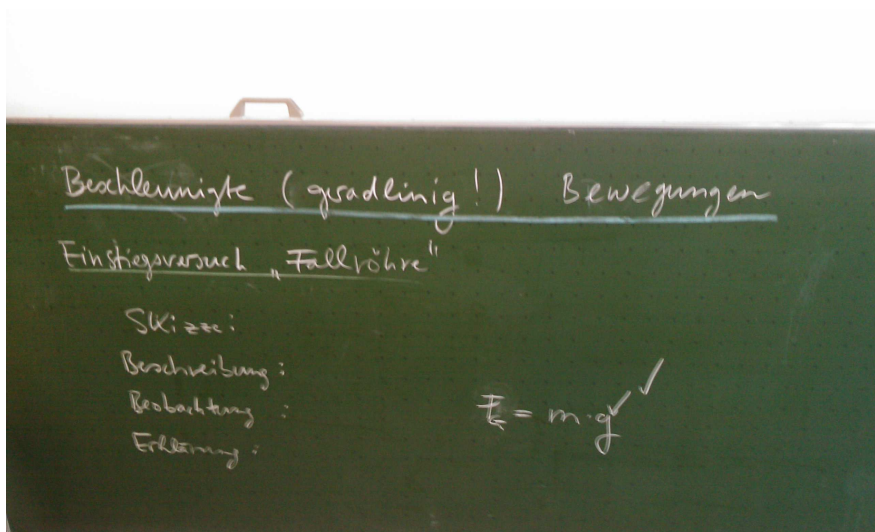 Beschleunigte (geradlinig!) Bewegungen
Einstiegsversuch „Fallröhre“
Skizze:
Beschreibung:
Beobachtung:
Erklärung:
F_G = m·g ✓ ✓